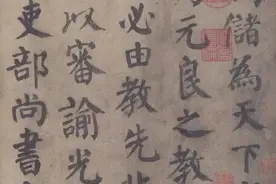 儲為天下
元良之教
必由教先非
以審諭光
吏部尚書